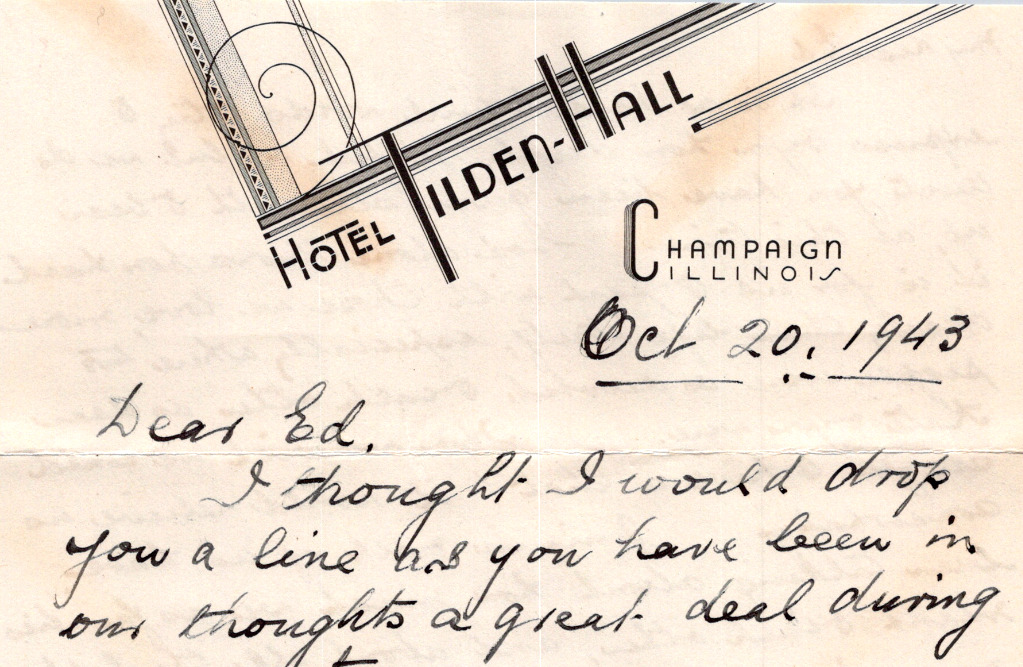 HOTEL TILDEN-HALL
CHAMPAIGN
ILLINOIS
Oct 20, 1943
Dear Ed,
I thought I would drop
you a line as you have been in
our thoughts a great deal during